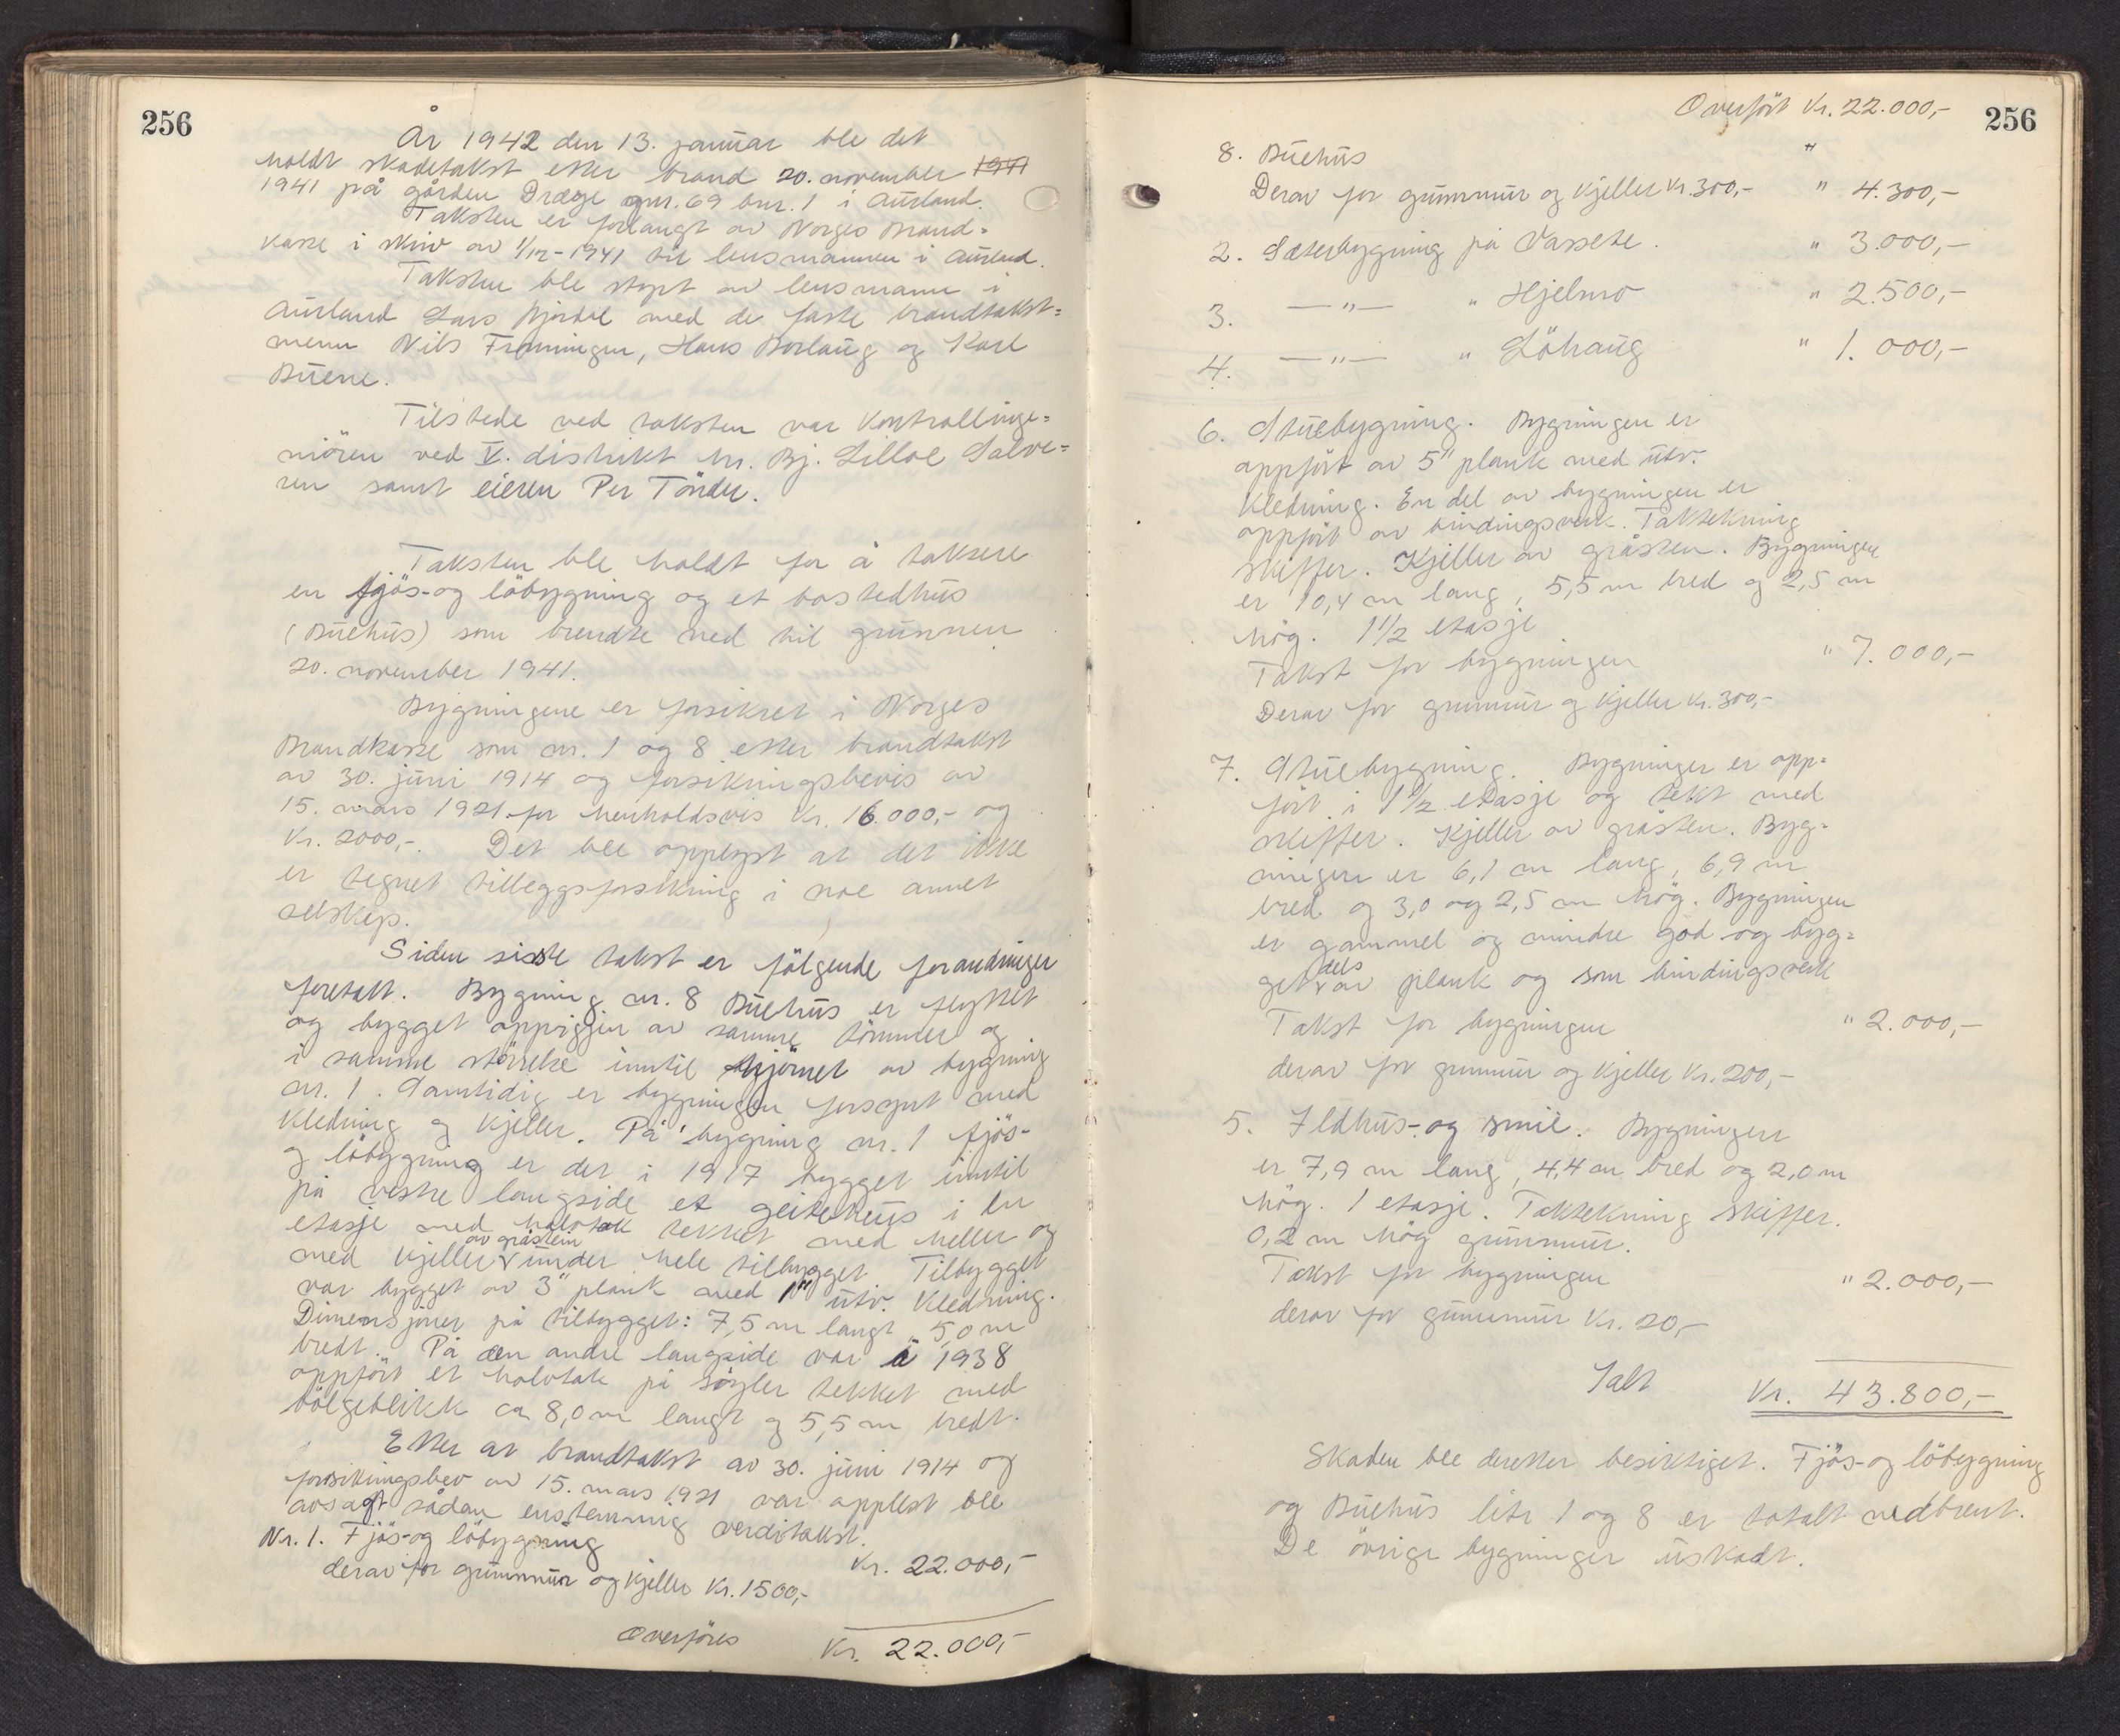 256
År 1942 den 13. januar ble det
holdt skadetakst etter brand 20. november 1941
1941 på gården Drægo gnr. 69 bnr. 1 i Aurland.
Taksten er forlangt av Norges Brand-
kasse i skriv av 1/12-1941 til lensmannen i Aurland.
Taksten ble styrt av lensmann i
Aurland Lars med de faste brandtakst=
menn Nils Frøningen, Hans Borlaug og Karl
Buene.
Tilstede ved taksten var Kontrollinge=
niören ved V. distrikt hr. Bj. Lilloe Salve=
sen samt eieren Per Tönder.
Taksten ble holdt for å taksere
en fjös- og löbygning og et bostedhus
(Buehus) som brendte ned til grunnen
20. november 1941.
Bygningene er forsikret i Norges
Brandkasse som nr. 1 og 8 etter brandtakst
av 30. juni 1914 og forsikringsbevis av
15. mars 1921 for henholdsvis kr. 16.000,- og
kr. 2000,-. Det ble opplyst at det ikke
er tegnet tilleggsforsikring i noe annet
selskap.
Siden siste takst er fölgende forandringer
foretatt. Bygning nr. 8 Buehus er flyttet
og bygget oppigjen av samme tömmer og
i samme störrelse inntil hjörnet av bygning
nr. 1. Samtidig er bygningen forsynt med
kledning og kjeller. På bygning nr. 1 fjös-
og löbygning er det i 1917 bygget inntil
på vestre langside et geitehus i en
etasje med halvtak tekket med heller og
av gråstein
med kjeller v under hele tilbygget. Tilbygget
var bygget av 3" plank med 1" utv. kledning.
Dimensjoner på tilbygget: 7,5 m langt, 5,0 m
bredt. På den andre langside var i 1938
oppfört et halvtak på söyler tekket med
bölgeblikk ca 8,0 m langt og 5,5 m bredt.
Etter at brandtakst av 30. juni 1914 og
forsikringsbev av 15. mars 1921 var opplest ble
avsagt sådan enstemmig verditakst.
Nr. 1. Fjös- og löbygning
Kr. 22.000,-
derav for grunnmur og kjeller kr. 1500,-
Overföres Kr. 22.000,-
Overfört Kr. 22.000,-
256
8. Buehus "
Derav for grunnmur og kjeller kr. 300,- " 4.300,-
2. Sæterbygning på Vassete. " 3.000,-
3. —"— " Hjelmo " 2.500,-
4. —"— " Löhaug " 1.000,-
6. Stuebygning. Bygningen er
oppfört av 5" plank med utv.
kledning. En del av bygningen er
oppfört av bindingsverk. Taktekning
skiffer. Kjeller av gråsten. Bygningen
er 10,4 m lang, 5,5 m bred og 2,5 m
hög. 1 1/2 etasje
Takst for bygningen " 7.000,-
Derav for grunnmur og kjeller kr. 300,-
7. Stuebygning. Bygningen er opp=
fört i 1 1/2 etasje og tekt med
skiffer. Kjeller av gråsten. Byg-
ningen er 6,1 m lang, 6,9 m
bred og 3,0 og 2,5 m hög. Bygningen
er gammel og mindre god og byg=
dels
get v av plank og som bindingsverk
Takst for bygningen " 2.000,-
derav for grunnmur og kjeller kr. 200,-
5. Ildhus- og smie. Bygningen
er 7,9 m lang, 4,4 m bred og 2,0 m
hög. 1 etasje. Taktekning skiffer.
0,2 m hög grunnmur.
Takst for bygningen " 2.000,-
derav for grunnmur kr. 20,-
Ialt Kr. 43.800,-
Skaden ble deretter besiktiget. Fjös- og löbygning
og Buehus litr 1 og 8 er totalt nedbrent.
De övrige bygninger uskadt.